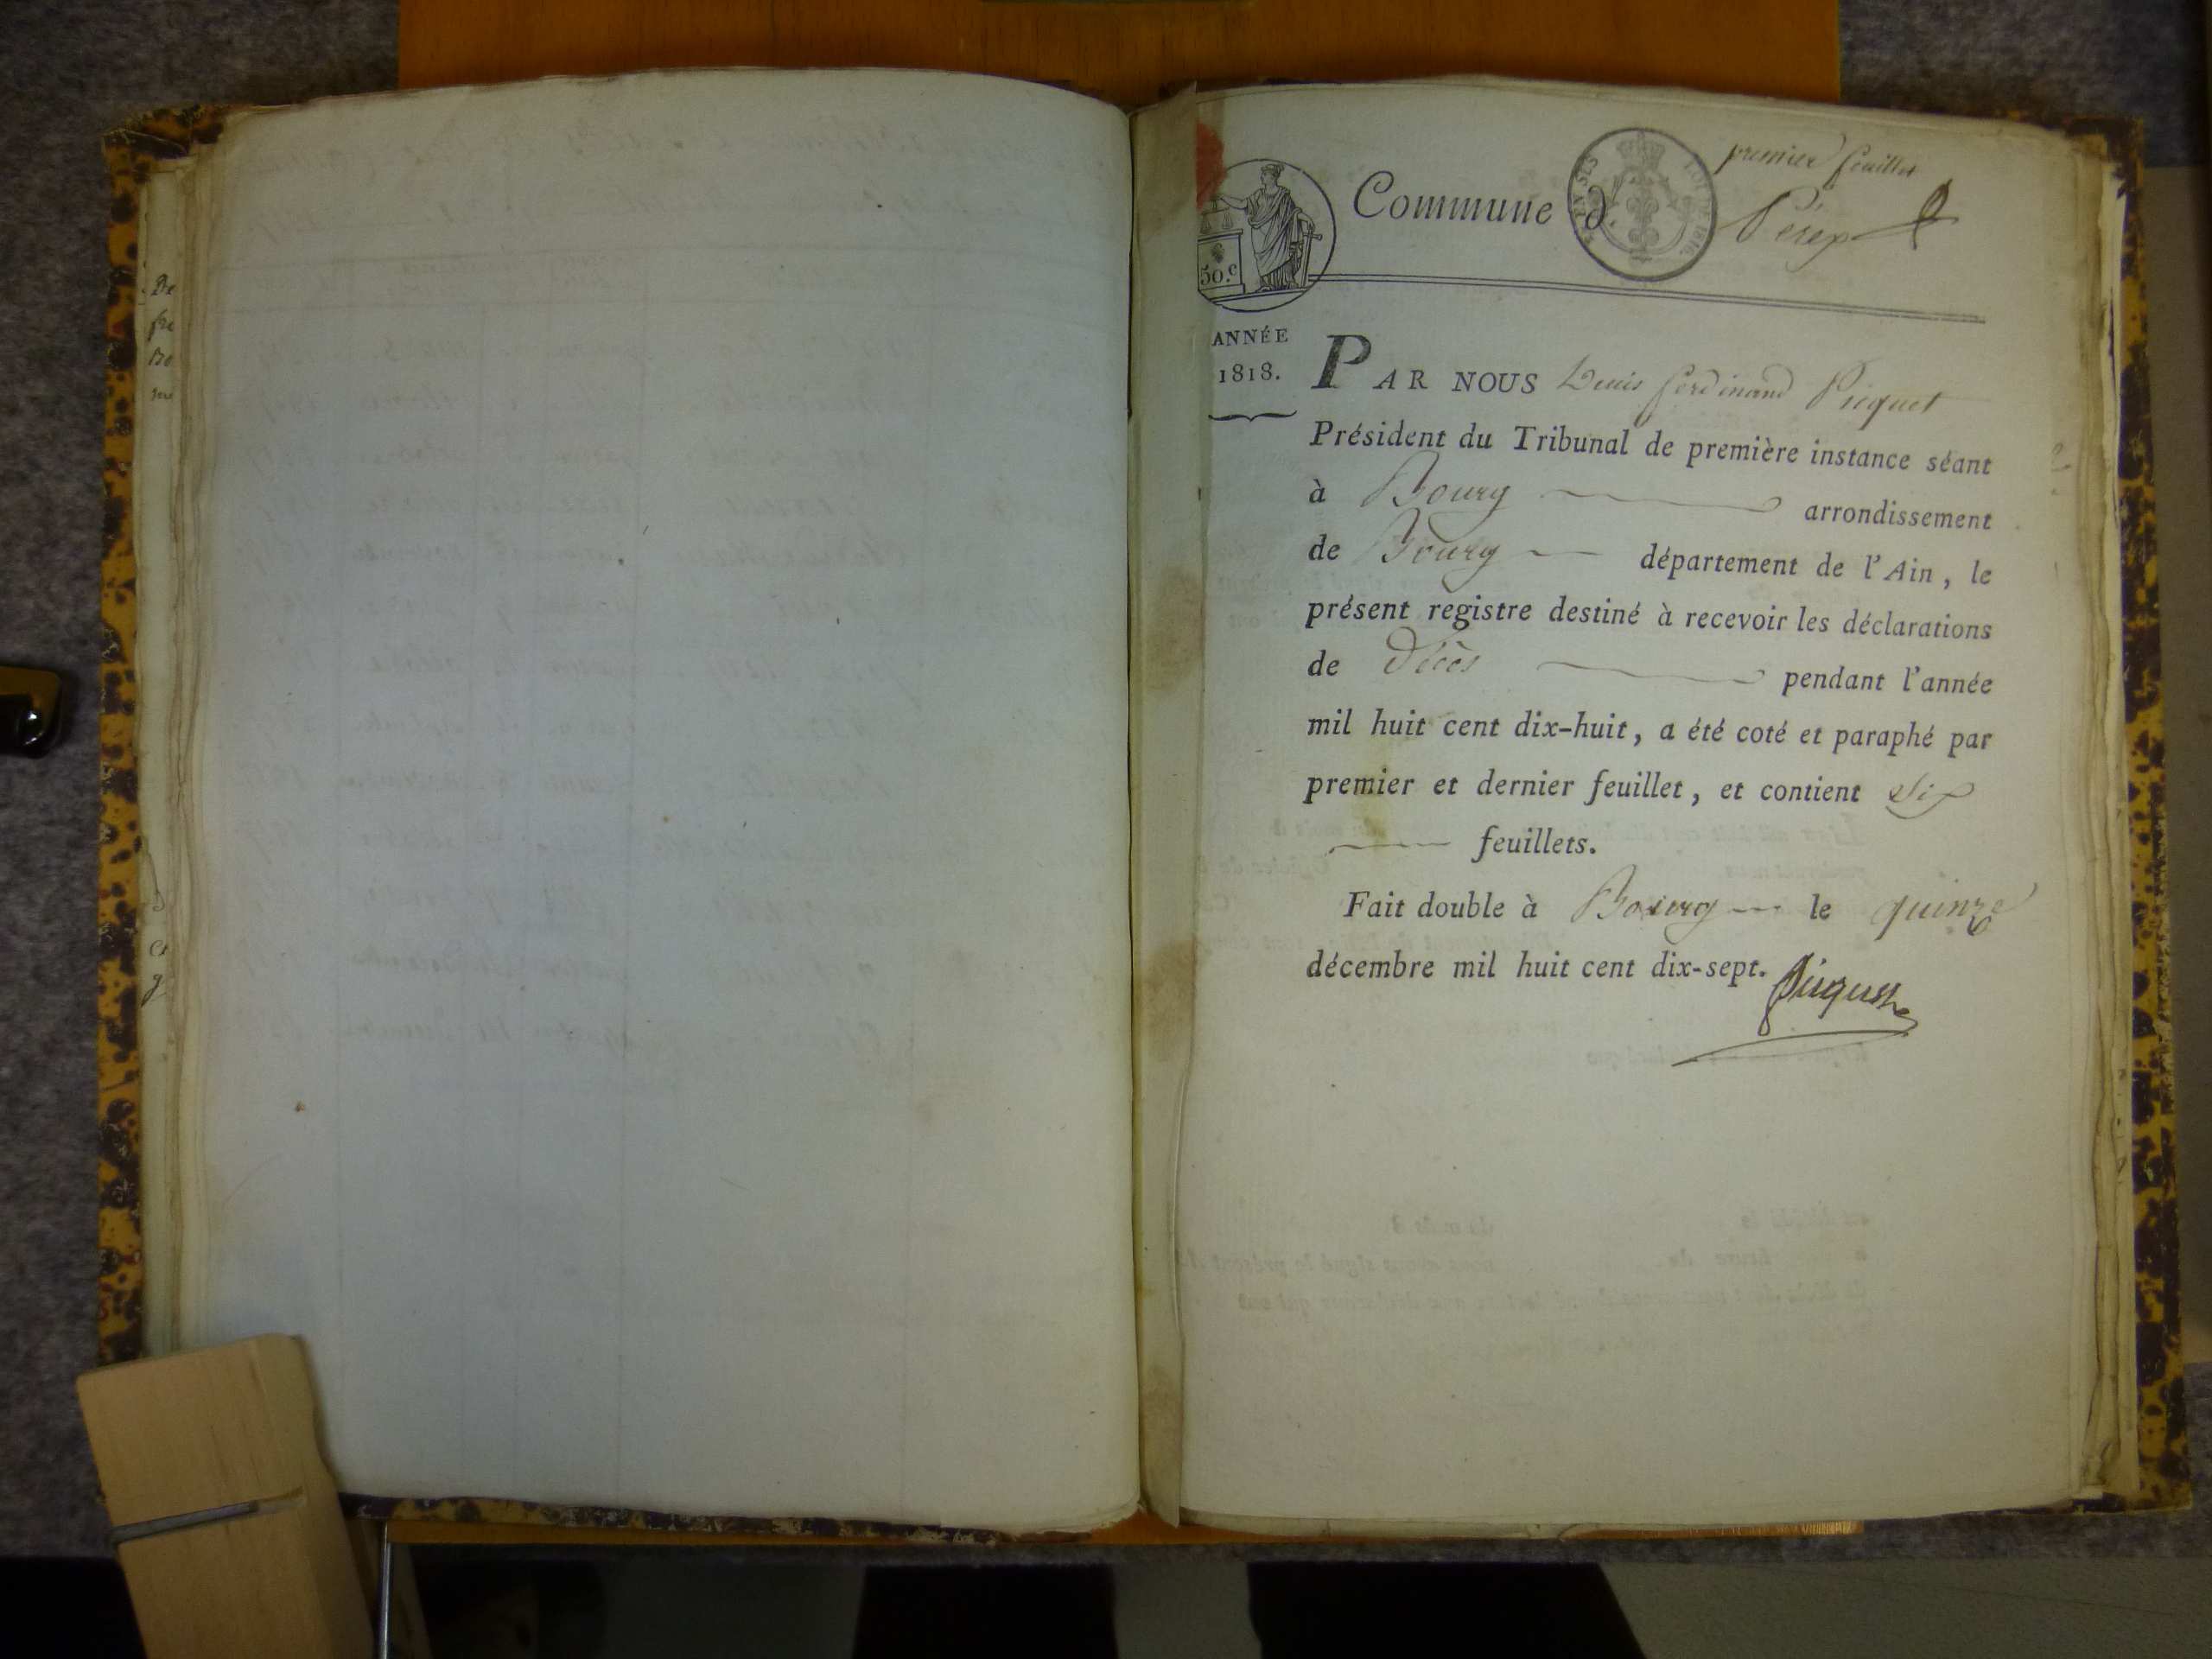 premier feuillet
Commune d. Pérex
50.c
ANNÉE
1818.
PAR NOUS Denis ferdinand Picquet
Président du Tribunal de première instance séant
à Bourg arrondissement
de Bourg département de l'Ain, le
présent registre destiné à recevoir les déclarations
de Décès pendant l'année
mil huit cent dix-huit, a été coté et paraphé par
premier et dernier feuillet, et contient Six
feuillets.
Fait double à Bourg le quinze
décembre mil huit cent dix-sept.
Picquet